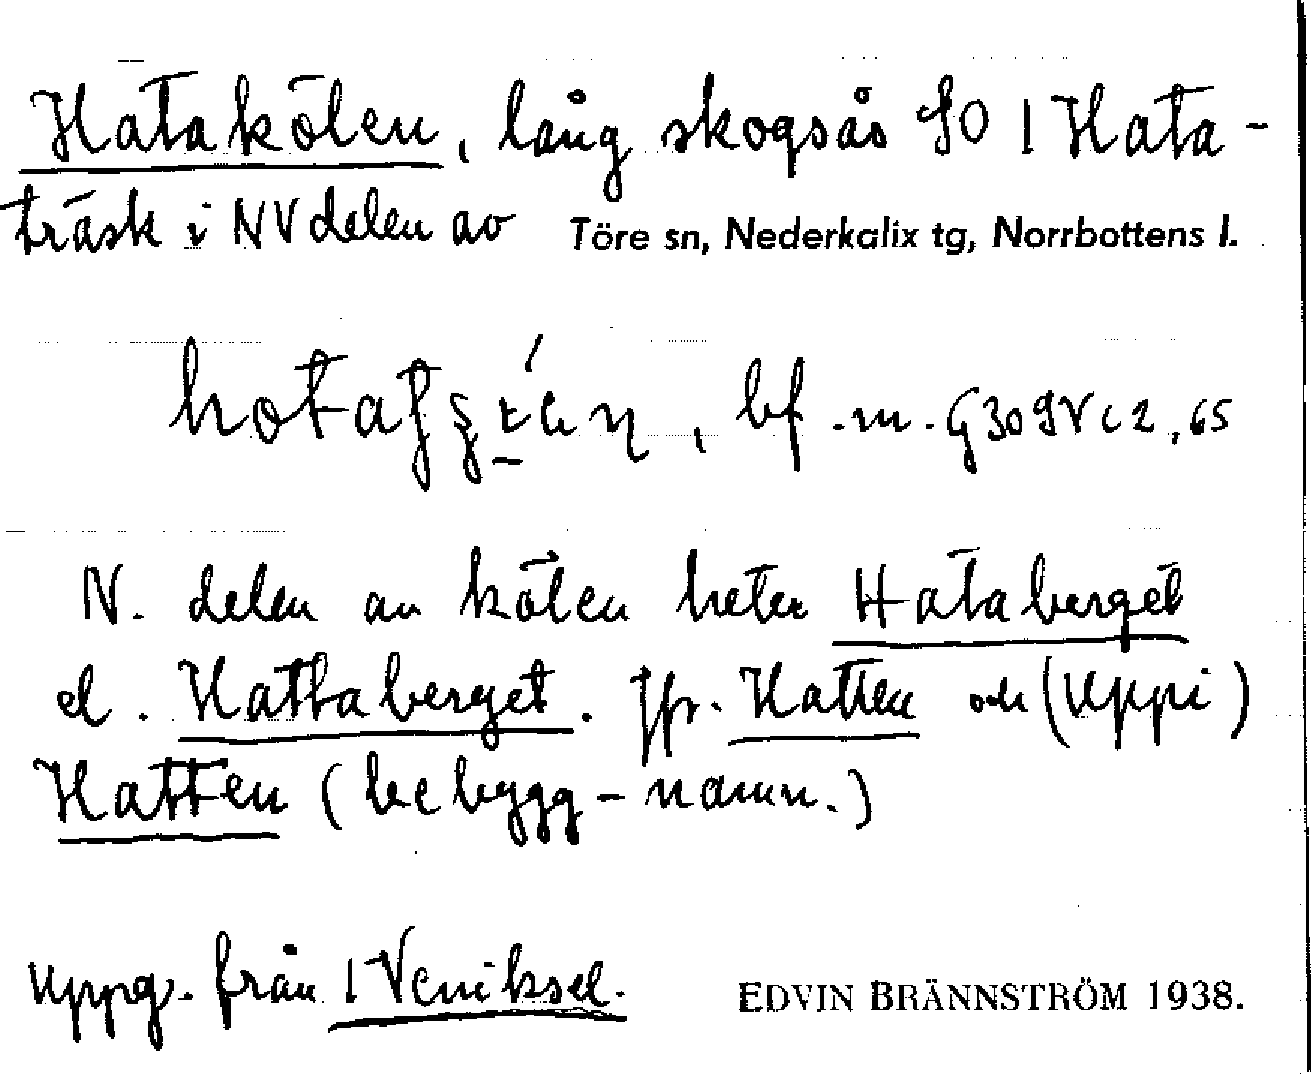 Hatakölen, lång skogsås SO | Hata-
träsk i NV delen av Töre sn, Nederkalix tg, Norrbottens l.
bf. m.
N. delen av kölen heter Hataberget
el. Hattaberget. Jfr. Hatten och (Uppi)
Hatten (bebygg-namn.)
Uppg. från | Veniksel. EDVIN BRÄNNSTRÖM 1938.